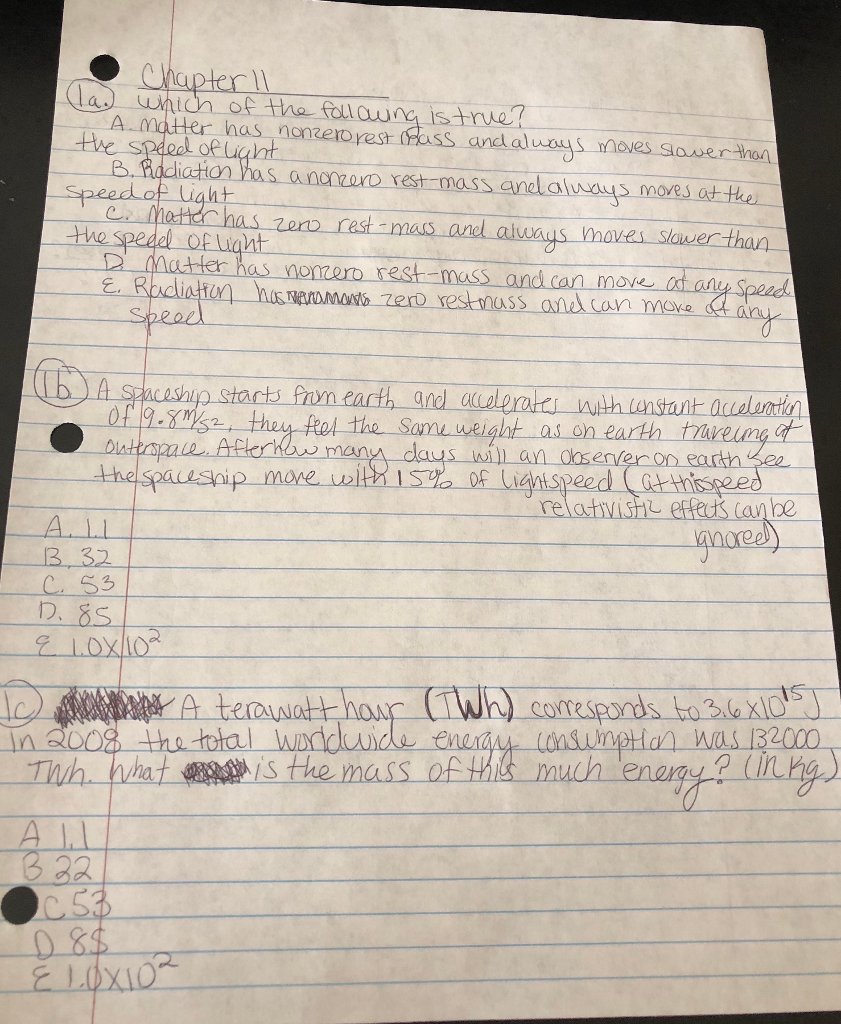 Chapter 11
1a. which of the following is true?
A. matter has nonzero rest mass and always moves slower than
the speed of light
B. Radiation has a nonzero rest-mass and always moves at the
speed of light
C. Matter has zero rest-mass and always moves slower than
the speed of light
D. Matter has nonzero rest-mass and can move at any speed
E. Radiation has zero restmass and can move at any
speed
1b A spaceship starts from earth and accelerates with constant acceleration
of 9.8m/s2, they feel the same weight as on earth traveling at
outerspace. After how many days will an observer on earth see
the spaceship move with 15% of lightspeed (at this speed
relativistic effects can be
ignored)
A. 1.1
B. 32
C. 53
D. 85
E 1.0x10²
1c A terawatt hour (TWh) corresponds to 3.6x10¹⁵J
in 2008 the total worldwide energy consumption was 132000
TWh. What is the mass of this much energy? (in kg)
A 1.1
B 32
C 53
D 85
E 1.0x10²